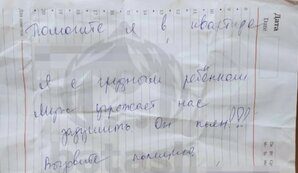 Помогите я в квартире
Я с грудным ребёнком
Муж угрожает нас
задушить Он пьян!!!
Вызовите полицию
Дата